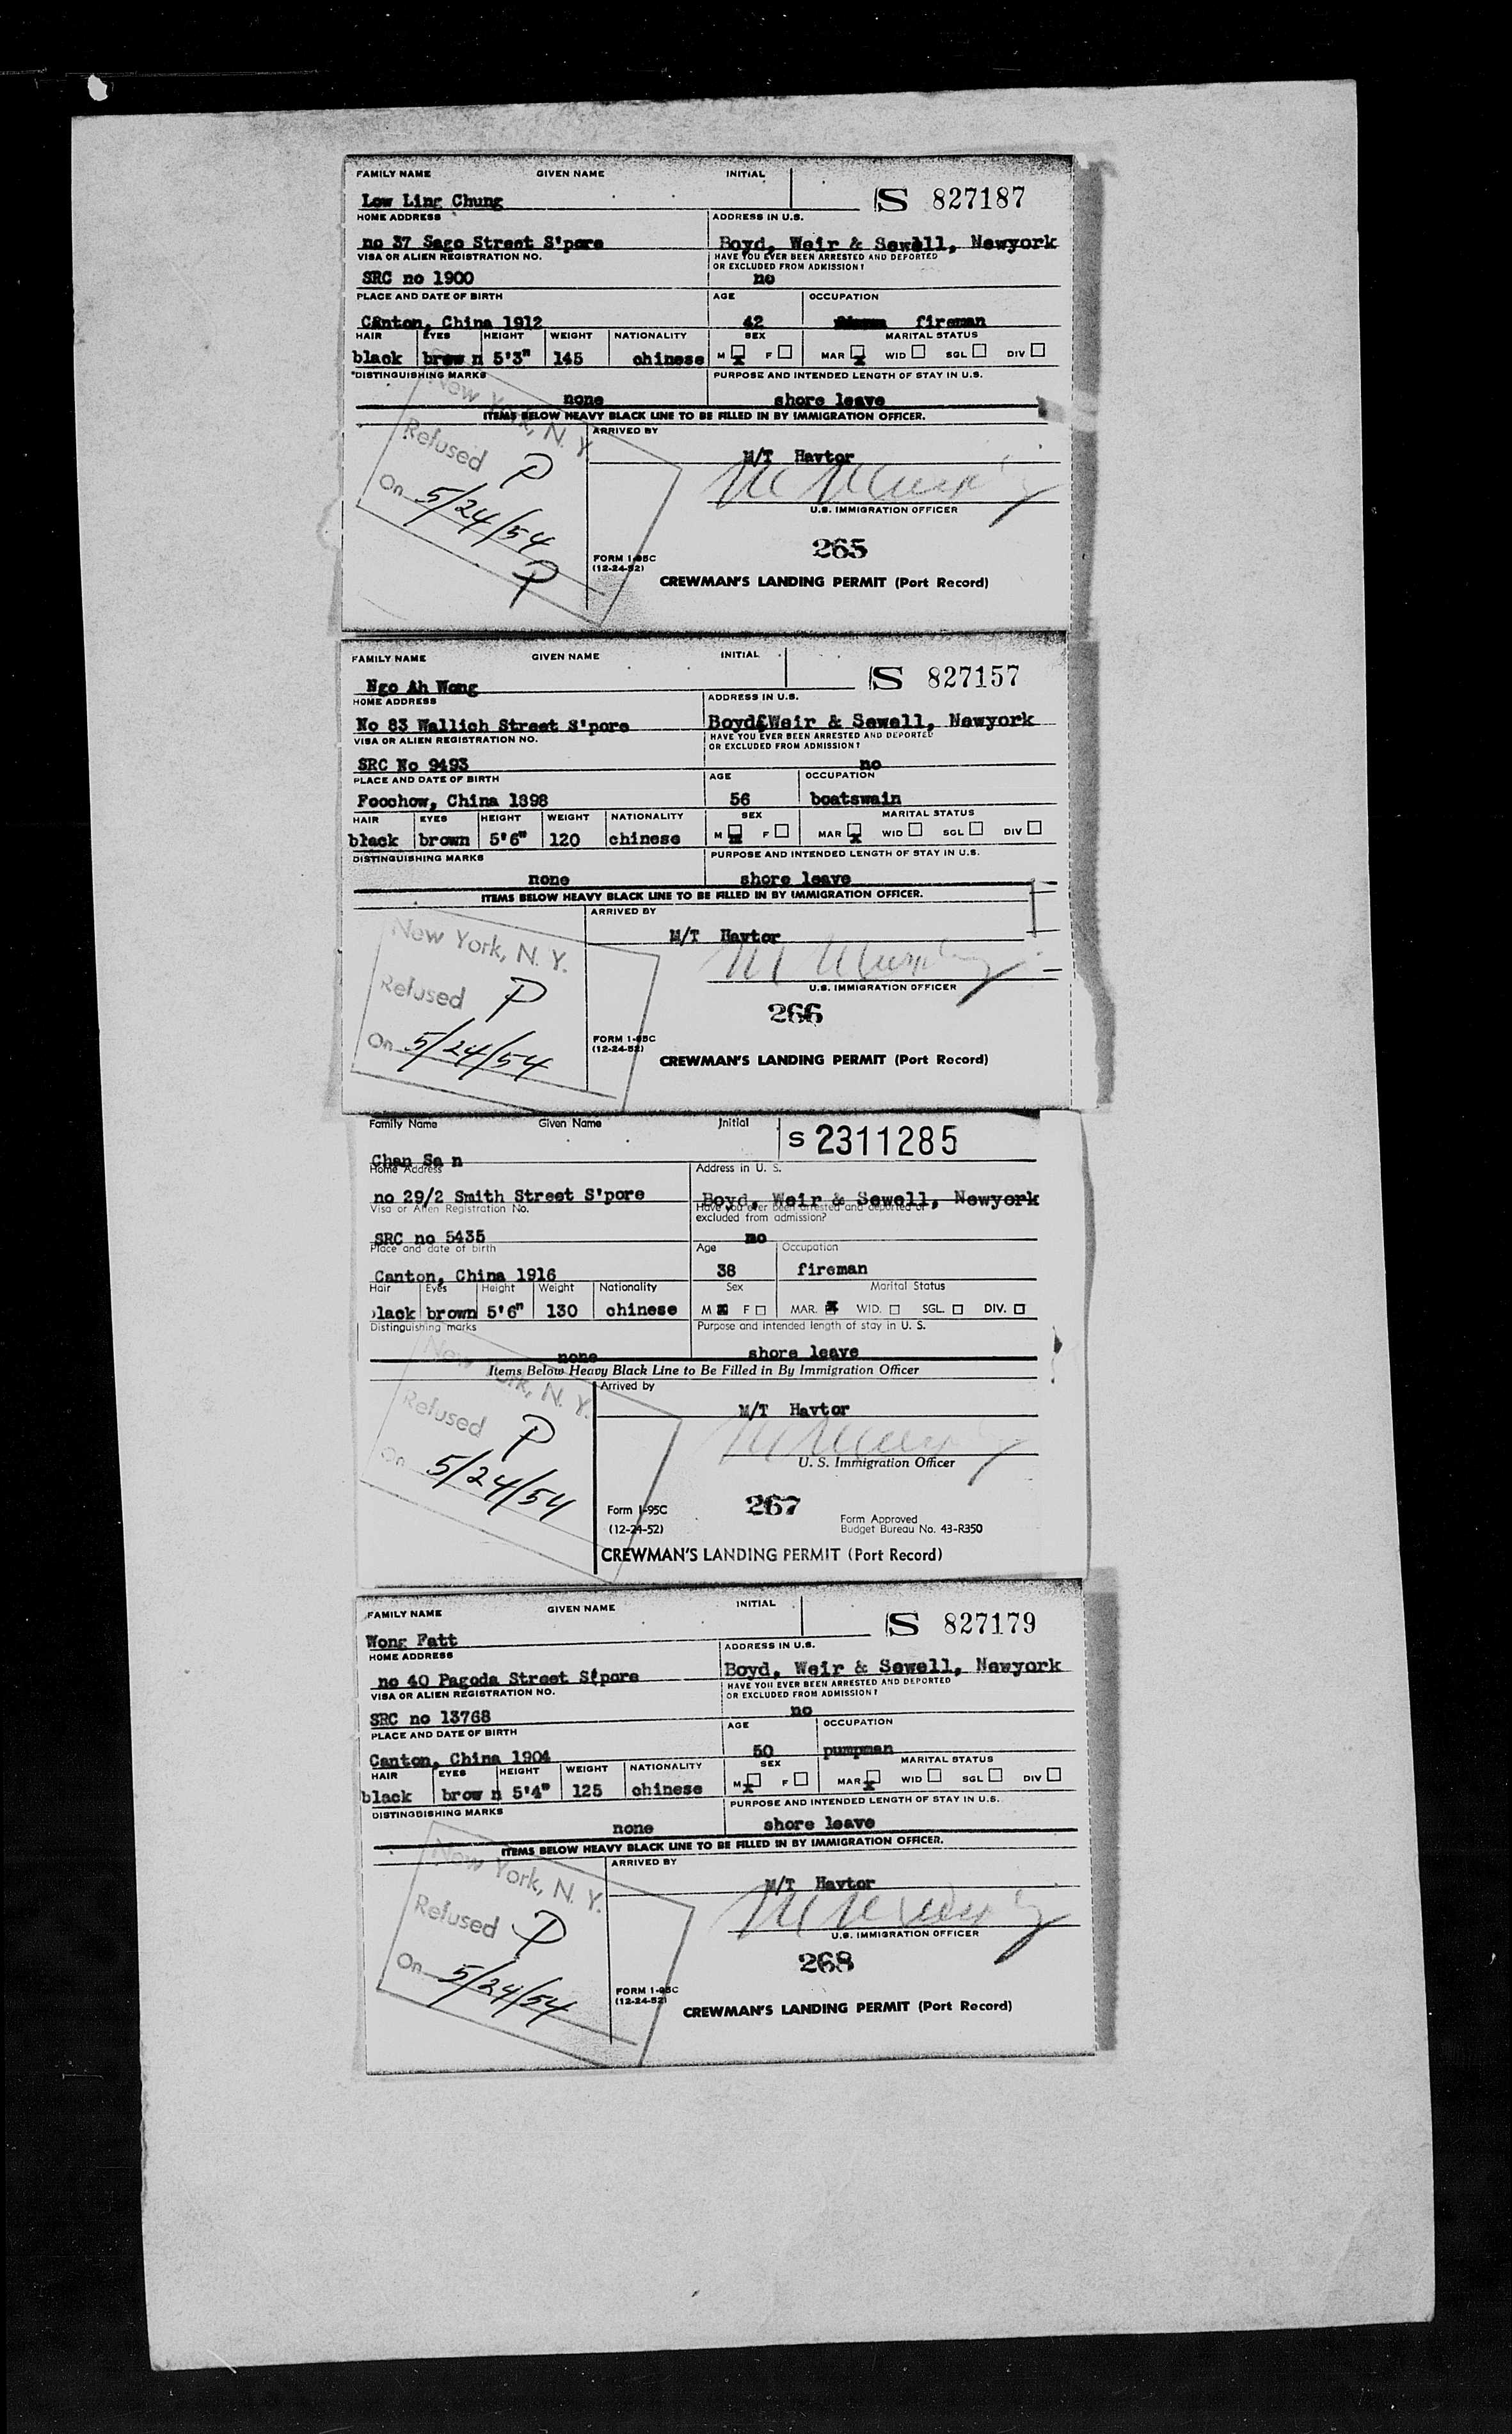 FAMILY NAME GIVEN NAME INITIAL
S 827187
Low Ling Chung
HOME ADDRESS ADDRESS IN U.S.
no 37 Sago Street S'pore Boyd, Weir & Sewell, Newyork
VISA OR ALIEN REGISTRATION NO. HAVE YOU EVER BEEN ARRESTED AND DEPORTED
OR EXCLUDED FROM ADMISSION?
SRC no 1900 no
PLACE AND DATE OF BIRTH AGE OCCUPATION
Canton, China 1912 42 fireman
HAIR EYES HEIGHT WEIGHT NATIONALITY SEX MARITAL STATUS
black brow n 5'3" 145 chinese M x F MAR x WID SGL DIV
DISTINGUISHING MARKS PURPOSE AND INTENDED LENGTH OF STAY IN U.S.
none shore leave
ITEMS BELOW HEAVY BLACK LINE TO BE FILLED IN BY IMMIGRATION OFFICER.
New York, N. Y.
ARRIVED BY
M/T Havtor
Refused P
On 5/24/54
P
U.S. IMMIGRATION OFFICER
265
FORM I-95C
(12-24-52)
CREWMAN'S LANDING PERMIT (Port Record)
FAMILY NAME GIVEN NAME INITIAL
S 827157
Ngo Ah Wong
HOME ADDRESS ADDRESS IN U.S.
No 83 Wallich Street S'pore Boyd, Weir & Sewell, Newyork
VISA OR ALIEN REGISTRATION NO. HAVE YOU EVER BEEN ARRESTED AND DEPORTED
OR EXCLUDED FROM ADMISSION?
SRC No 9493 no
PLACE AND DATE OF BIRTH AGE OCCUPATION
Foochow, China 1898 56 boatswain
HAIR EYES HEIGHT WEIGHT NATIONALITY SEX MARITAL STATUS
black brown 5'6" 120 chinese M x F MAR x WID SGL DIV
DISTINGUISHING MARKS PURPOSE AND INTENDED LENGTH OF STAY IN U.S.
none shore leave
ITEMS BELOW HEAVY BLACK LINE TO BE FILLED IN BY IMMIGRATION OFFICER.
ARRIVED BY
New York, N. Y.
M/T Havtor
Refused P
On 5/24/54
U.S. IMMIGRATION OFFICER
266
FORM I-95C
(12-24-52)
CREWMAN'S LANDING PERMIT (Port Record)
Family Name Given Name Initial
S 2311285
Chan Sa n
Home Address Address in U. S.
no 29/2 Smith Street S'pore Boyd, Weir & Sewell, Newyork
Visa or Alien Registration No. Have you ever been arrested and deported or
excluded from admission?
SRC no 5435 no
Place and date of birth Age Occupation
Canton, China 1916 38 fireman
Hair Eyes Height Weight Nationality Sex Marital Status
lack brown 5'6" 130 chinese M x F MAR. x WID. SGL. DIV.
Distinguishing marks Purpose and intended length of stay in U. S.
none shore leave
Items Below Heavy Black Line to Be Filled in By Immigration Officer
New York, N. Y.
Arrived by
M/T Havtor
Refused P
On 5/24/54
U. S. Immigration Officer
267
Form I-95C
(12-24-52)
Form Approved
Budget Bureau No. 43-R350
CREWMAN'S LANDING PERMIT (Port Record)
FAMILY NAME GIVEN NAME INITIAL
S 827179
Wong Fatt
HOME ADDRESS ADDRESS IN U.S.
no 40 Pagoda Street S'pore Boyd, Weir & Sewell, Newyork
VISA OR ALIEN REGISTRATION NO. HAVE YOU EVER BEEN ARRESTED AND DEPORTED
OR EXCLUDED FROM ADMISSION?
SRC no 13768 no
PLACE AND DATE OF BIRTH AGE OCCUPATION
Canton, China 1904 50 pumpman
HAIR EYES HEIGHT WEIGHT NATIONALITY SEX MARITAL STATUS
black brow n 5'4" 125 chinese M x F MAR x WID SGL DIV
DISTINGUISHING MARKS PURPOSE AND INTENDED LENGTH OF STAY IN U.S.
none shore leave
ITEMS BELOW HEAVY BLACK LINE TO BE FILLED IN BY IMMIGRATION OFFICER.
New York, N. Y.
ARRIVED BY
M/T Havtor
Refused P
On 5/24/54
U.S. IMMIGRATION OFFICER
268
FORM I-95C
(12-24-52)
CREWMAN'S LANDING PERMIT (Port Record)